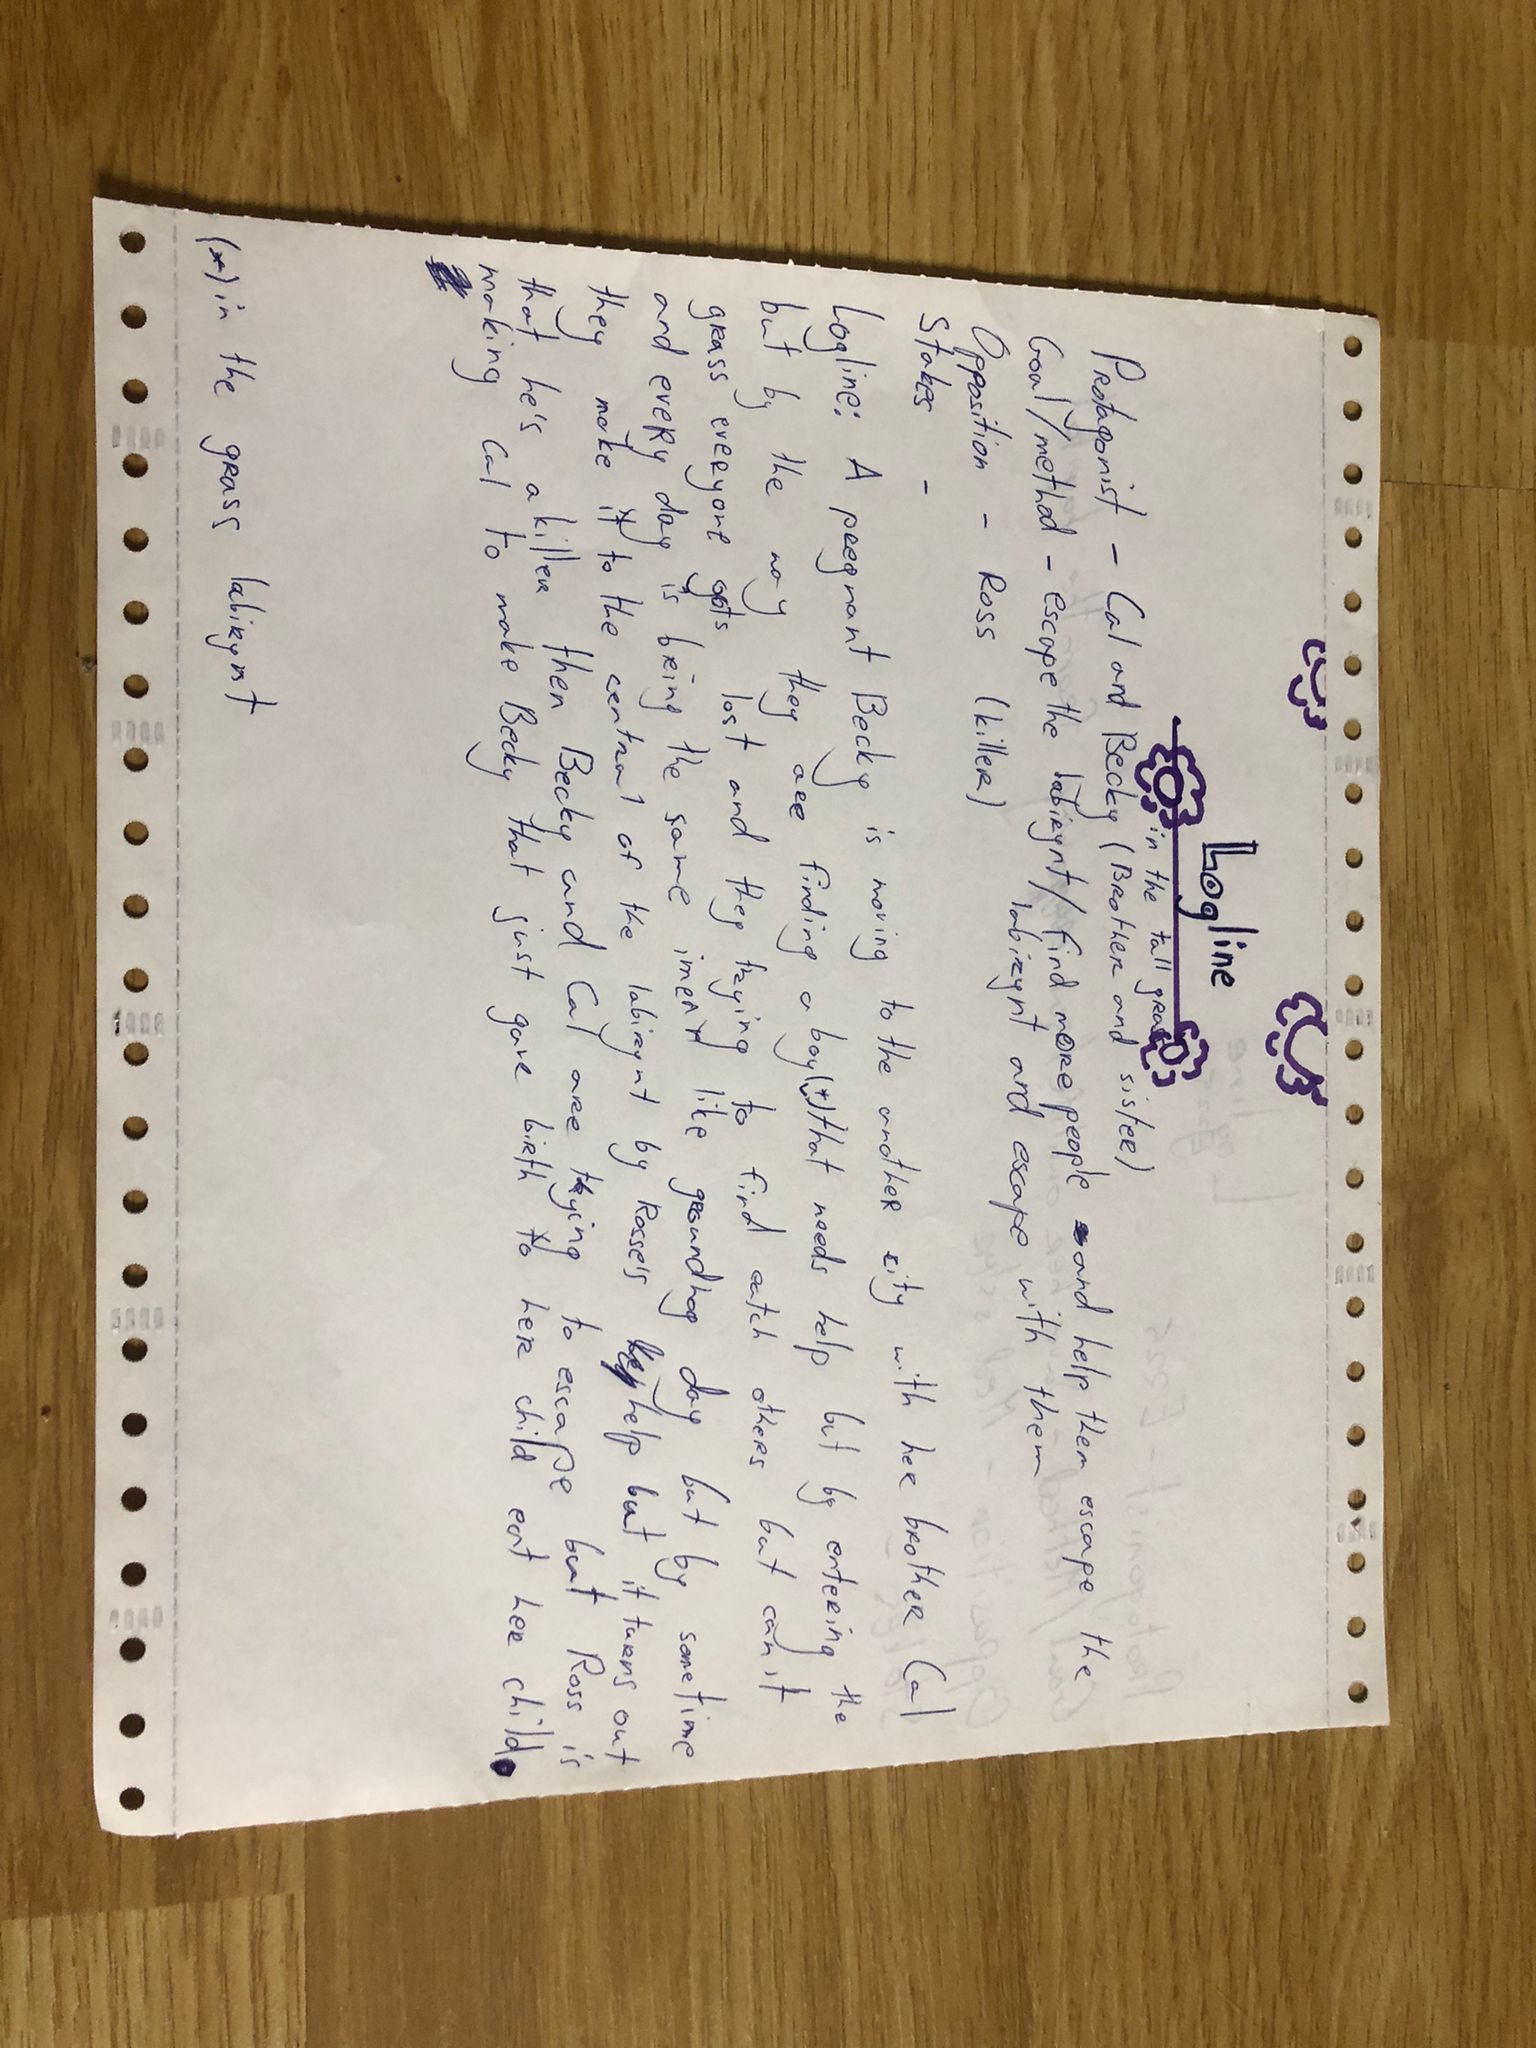 Logline
in the tall grass
Protagonist - Cal and Becky (Brother and sister)
Goal/method - escape the labirynt/find more people and help them escape the
labirynt and escape with them
Opposition - Ross (killer)
Stakes -
Logline: A pregnant Becky is moving to the another city with her brother Cal
but by the way they are finding a boy(*) that needs help but by entering the
grass everyone gets lost and they trying to find eatch others but can it
and every day is being the same like groundhog day but by sometime
they make it to the central of the labirynt by Rosse's help but it turns out
that he's a killer then Becky and Cal are trying to escape but Ross is
making Cal to make Becky that just gave birth to her child eat her child.
(*) in the grass labirynt